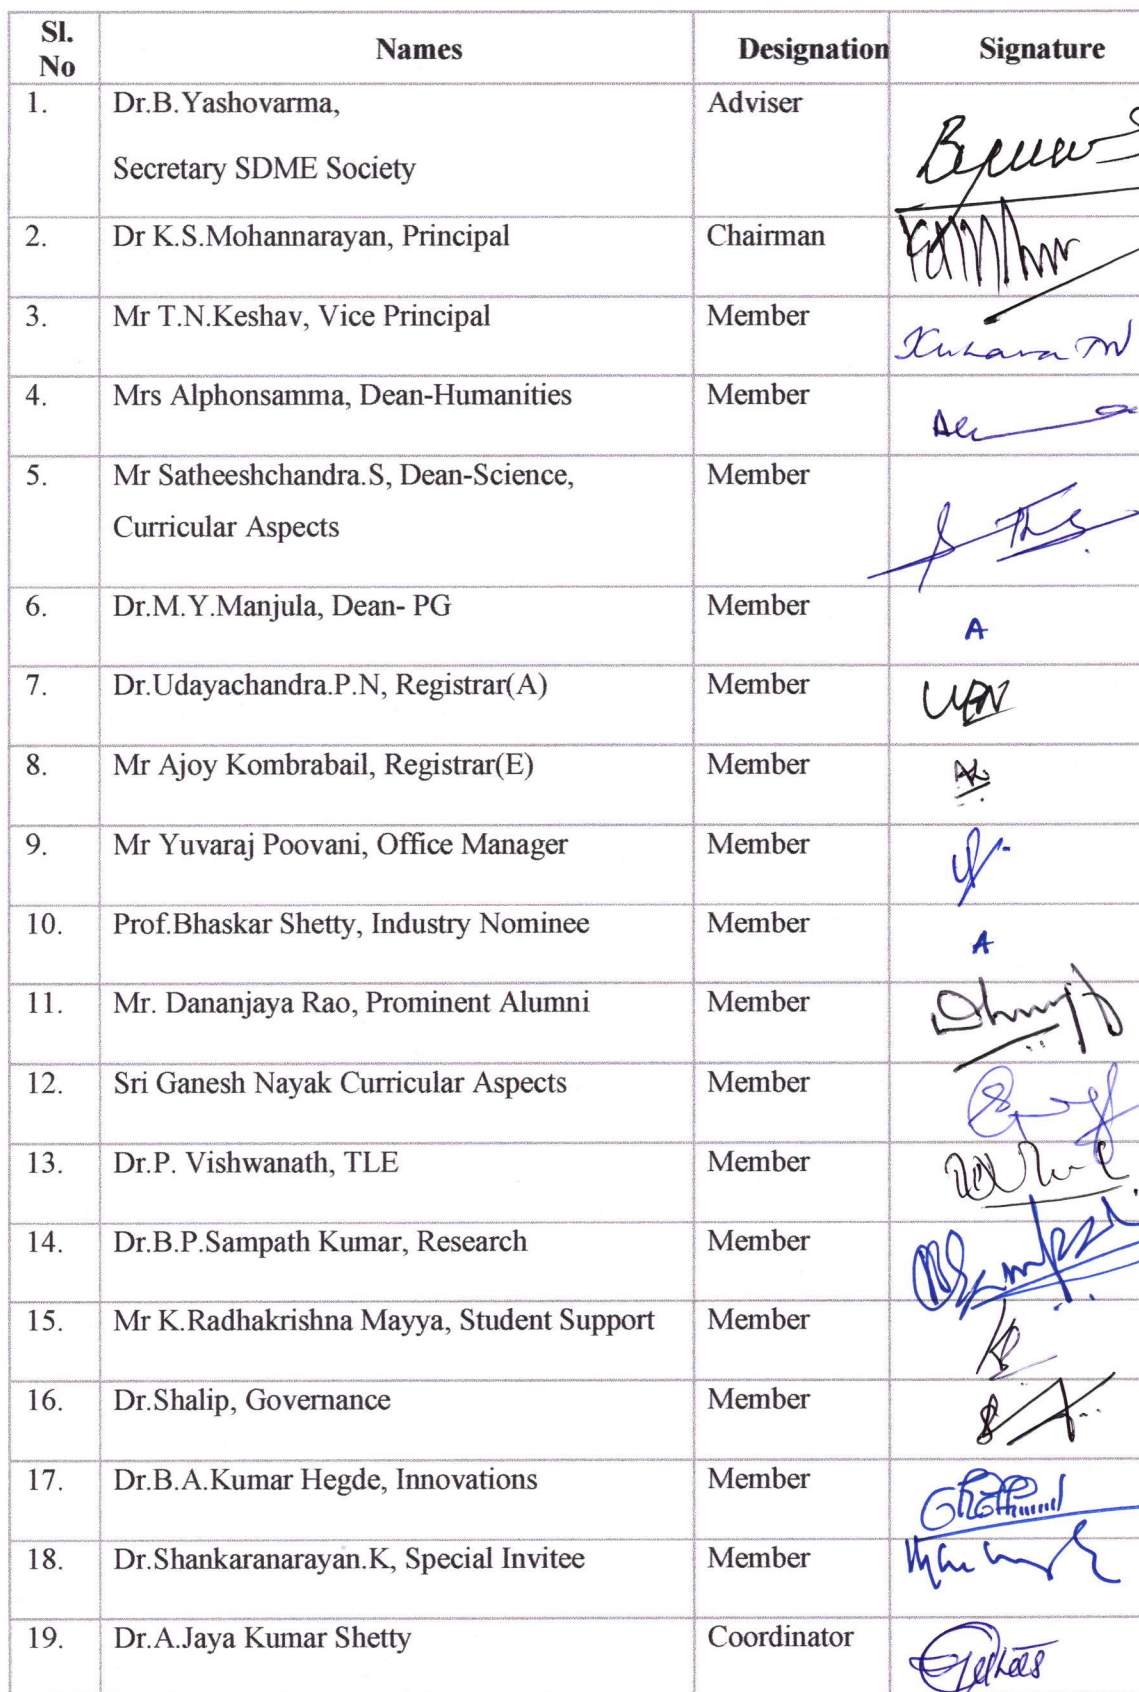 Sl. No Names Designation Signature
1. Dr.B.Yashovarma, Adviser
Secretary SDME Society
2. Dr K.S.Mohannarayan, Principal Chairman
3. Mr T.N.Keshav, Vice Principal Member
4. Mrs Alphonsamma, Dean-Humanities Member
5. Mr Satheeshchandra.S, Dean-Science, Member
Curricular Aspects
6. Dr.M.Y.Manjula, Dean- PG Member A
7. Dr.Udayachandra.P.N, Registrar(A) Member UPN
8. Mr Ajoy Kombrabail, Registrar(E) Member
9. Mr Yuvaraj Poovani, Office Manager Member
10. Prof.Bhaskar Shetty, Industry Nominee Member A
11. Mr. Dananjaya Rao, Prominent Alumni Member
12. Sri Ganesh Nayak Curricular Aspects Member
13. Dr.P. Vishwanath, TLE Member
14. Dr.B.P.Sampath Kumar, Research Member
15. Mr K.Radhakrishna Mayya, Student Support Member
16. Dr.Shalip, Governance Member
17. Dr.B.A.Kumar Hegde, Innovations Member
18. Dr.Shankaranarayan.K, Special Invitee Member
19. Dr.A.Jaya Kumar Shetty Coordinator